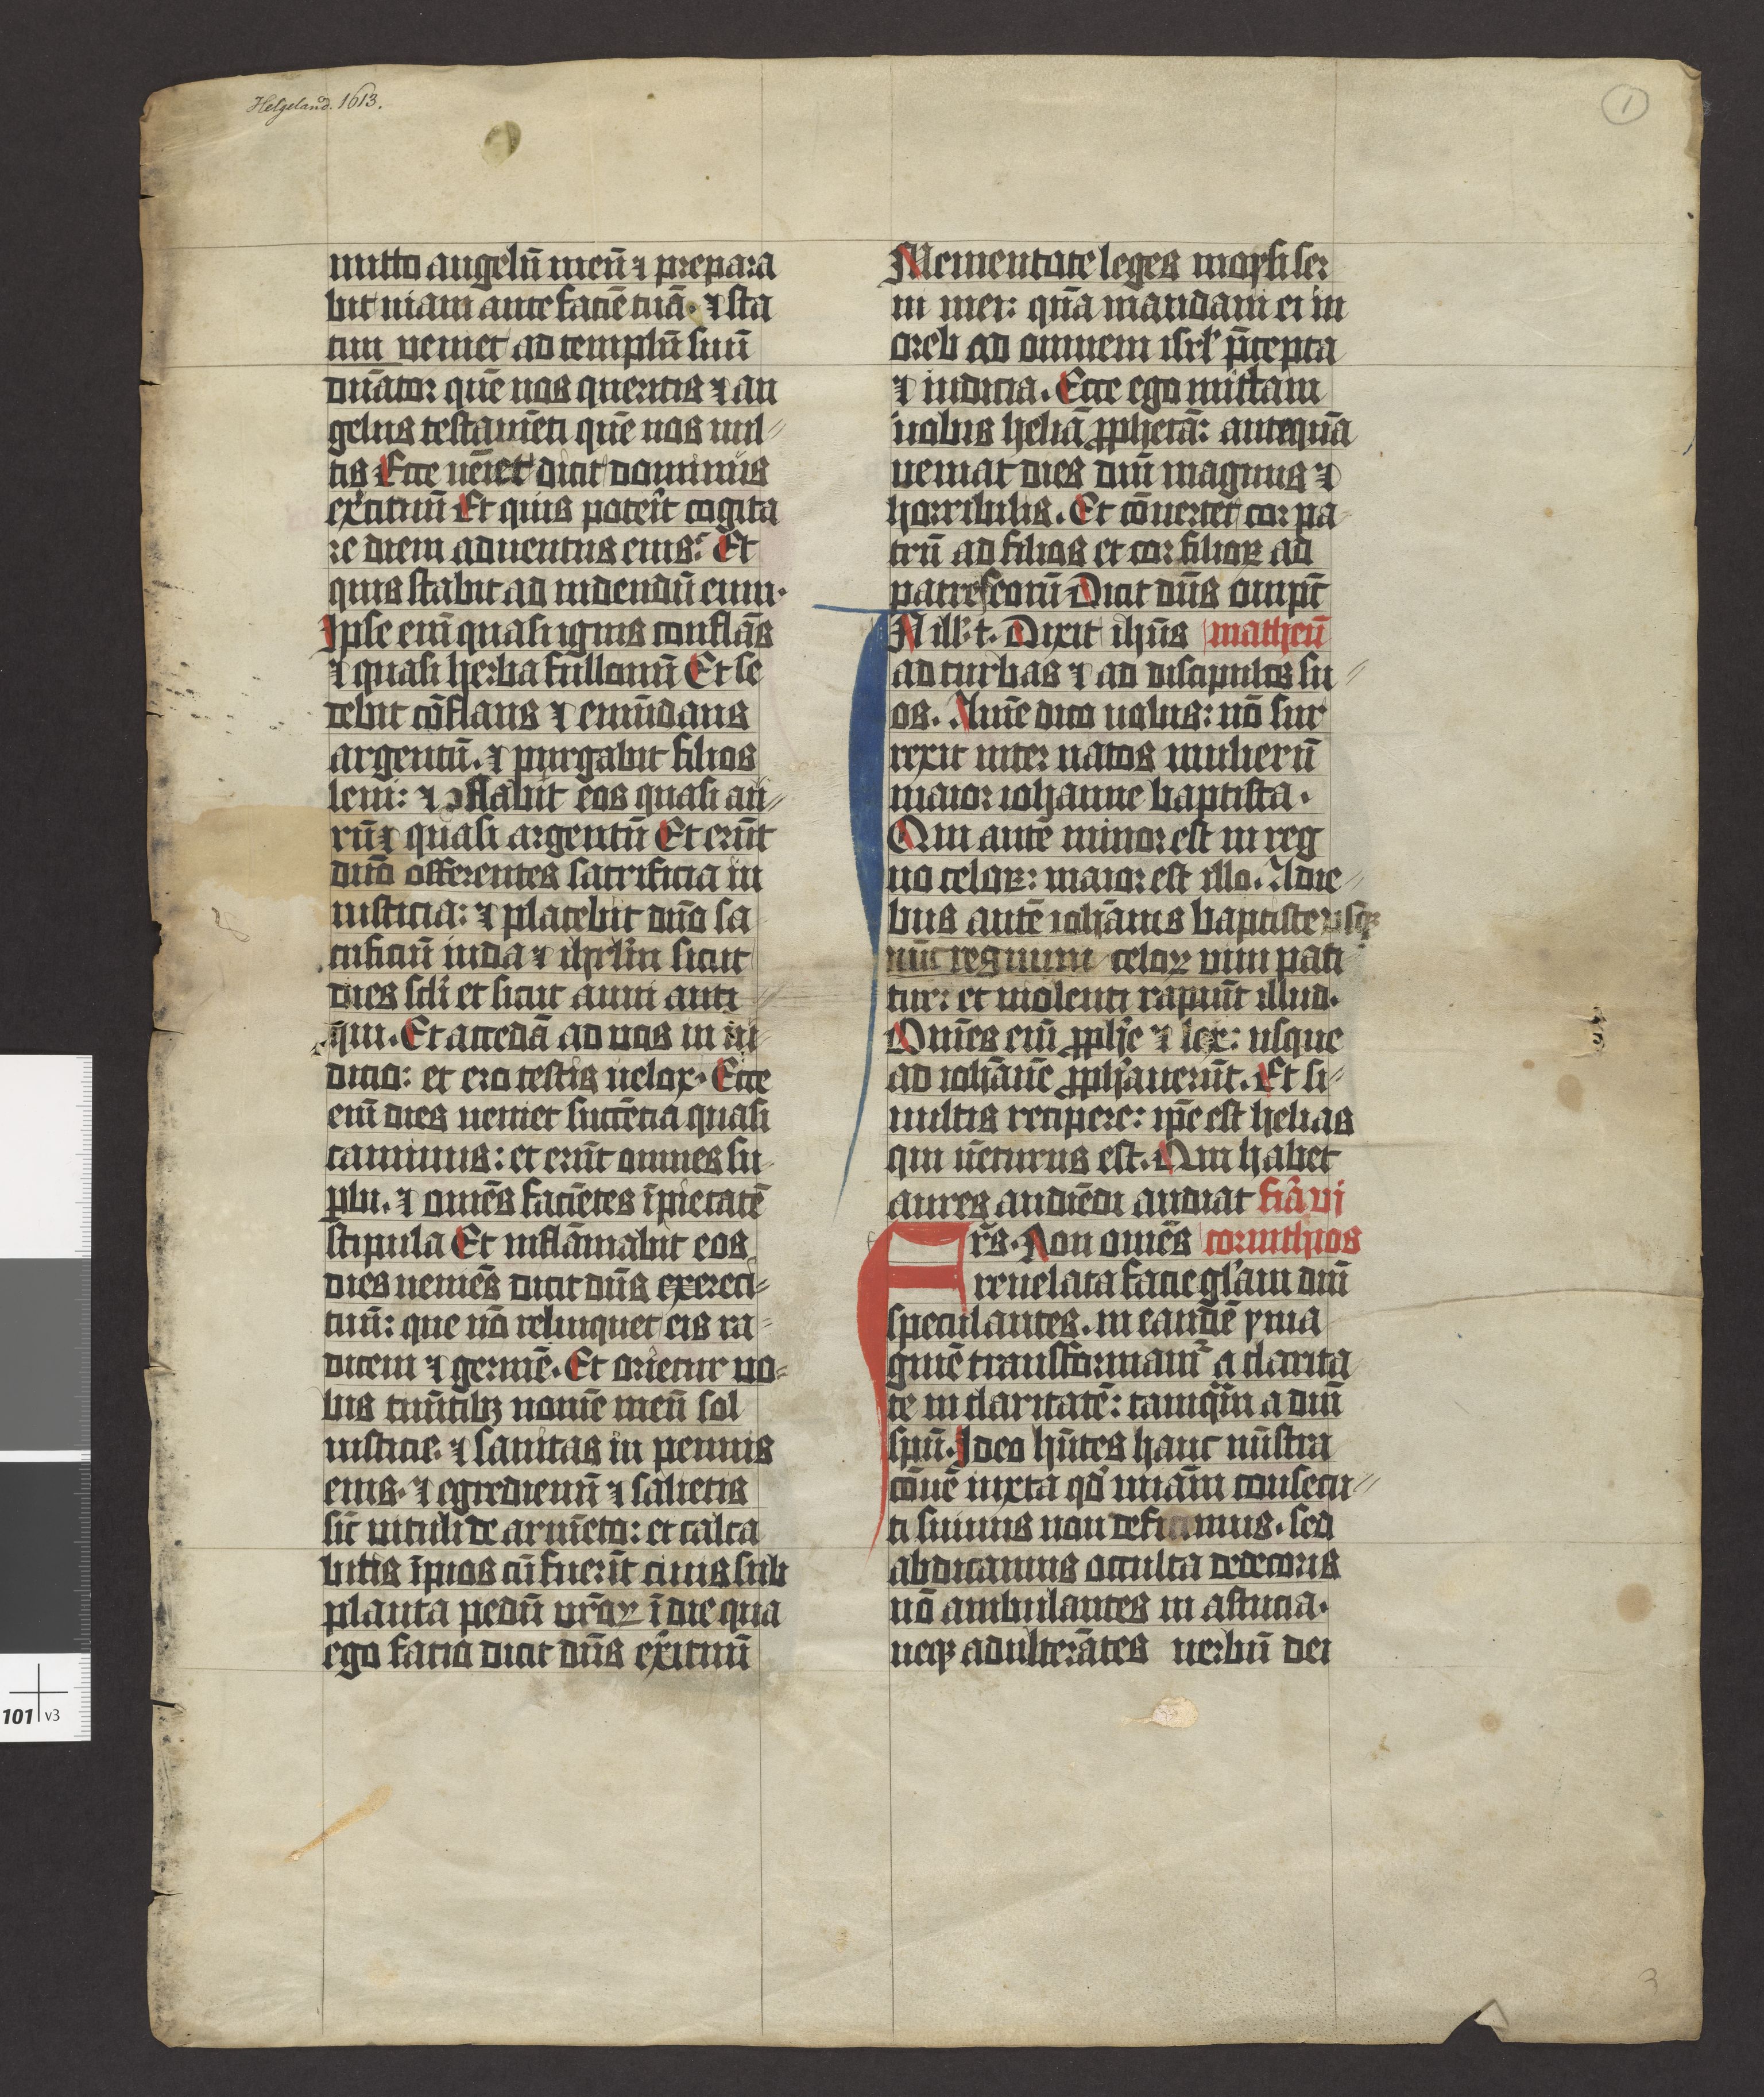 Helgeland. 1613.
1
mitto angelū meū ⁊ prepara
bit uiam ante faciē tuā. ⁊ sta
tim ueniet ad templū suū
dn̄ator quē uos queritis ⁊ an
gelus testamēti quē uos uul〃
tis Ecce ueniet dicit dominus
exc̄ituū Et quis poterit cogita
re diem aduentus eius? Et
quis stabit ad uidendū eum.
Ipse eni̅ quasi ignis conflās
⁊ quasi herba fullonū Et se
debit cōflans ⁊ emūdans
argentū. ⁊ purgabit filios
leui: ⁊ ꝯflabit eos quasi au〃
rū ⁊ quasi argentū Et erūt
dn̄o offerentes sacrificia in
iusticia: ⁊ placebit dn̄o sa
crificiū iuda ⁊ ihrl̄m sicut
dies scl̄i et sicut anni anti
qui. Et accedā ad uos in iu-
dicio: et ero testis uelox. Ecce
eni̅ dies ueniet succēsa quasi
caminus: et erūt omnes su-
p̱bi. ⁊ omēs faciētes īpietatē
stipula Et inflāmabit eos
dies ueniēs dicit dn̄s exerci〃
tuū: que nō relinquet eis ra-
dicem ⁊ germē. Et orietur uo-
bis timētibꝫ nomē meū sol
iusticie. ⁊ sanitas in pennis
eius. ⁊ egrediemī ⁊ salietis
sic̄ uituli de armēto: et calca
bitis īpios cū fuerīt cinis sub
planta pedū vr̄oꝝ ī die qua
ego facio dicit dn̄s ex̄cituū
Mementote leges moysi ser
ui mei: quā mandaui ei in
oreb ad omnem isrl̄ p̄cepta
⁊ iudicia. Ecce ego mittam
uobis heliā ꝓphetā: antequā
ueniat dies dn̄i magnus ⁊
horribilis. Et cōuertet cor pa
trū ad filios et cor filioꝝ ad
patres eorū Dicit dn̄s omp̄t
In ill̄ t. Dixit ihūs matheū
ad turbas ⁊ ad discipulos su〃
os. Amē dico uobis: nō sur
rexit inter natos mulierū
maior iohanne baptista.
Qui autē minor est in reg
no celoꝝ: maior est illo. A die〃
bus autē iohānis baptiste usqꝫ
nūc regnum celoꝝ uim pati
tur: et uiolenti rapiūt illud.
Omēs eni̅ ꝓph̄e ⁊ lex: usque
ad iohānē ꝓph̄auerūt. Et si〃
uultis recipere: ip̄e est helias
qui uēturus est. Qui habet
aures audiēdi audiat fiā vi
Fr̄s. Non omēs corinthios
reuelata facie gl̄am dn̄i
speculantes. in eandē yma
ginē transformamᷣ a clarita
te in claritatē: tamq̄m a dn̄i
spū. Ideo hn̄tes hanc mīstra
cōnē iuxta qd̄ mīam consecu〃
ti sumus non deficimus. sed
abdicamus occulta dedecoris
nō ambulantes in astucia.
neqꝫ adulterātes uerbū dei
3